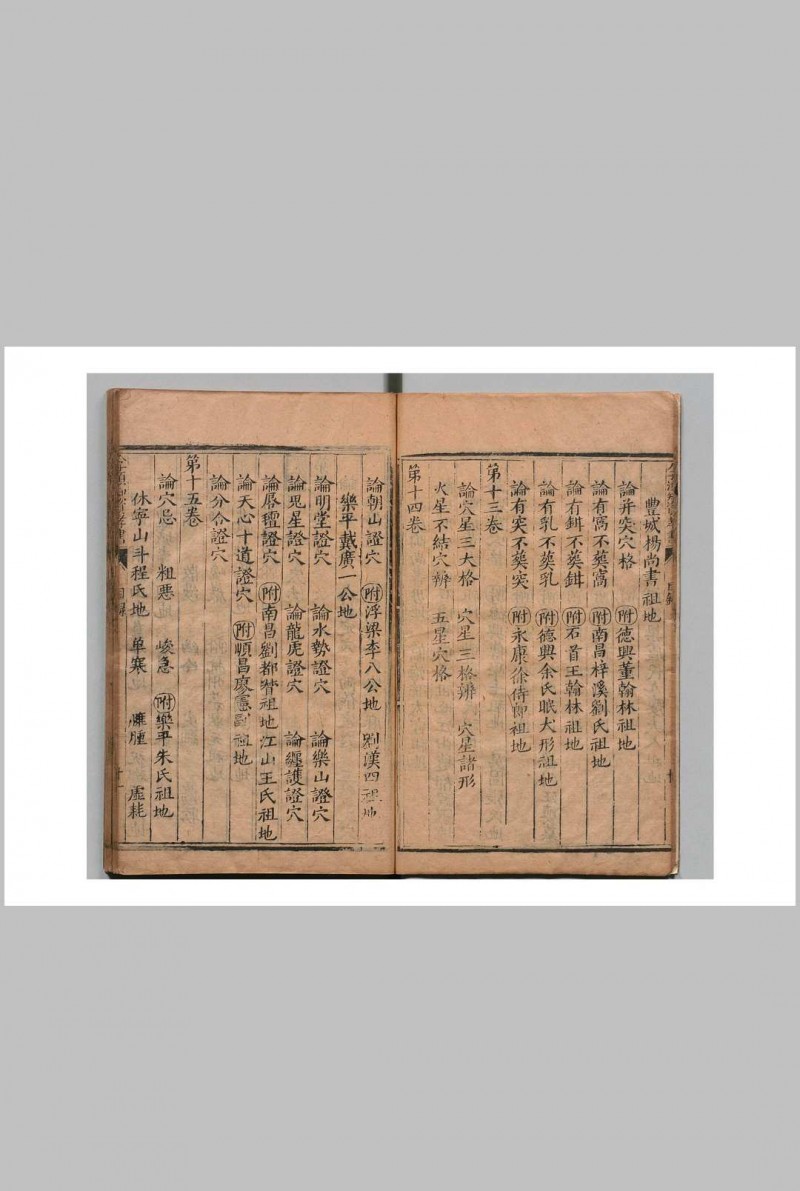 豐城楊尚書祖地
論并突穴格 附德興董翰林祖地
論有窩不葬窩 附南昌梓溪劉氏祖地
論有鉗不葬鉗 附石首王翰林祖地
論有乳不葬乳 附德興余氏眠犬形祖地
論有突不葬突 附永康徐侍郎祖地
第十三卷
論穴星三大格 穴星三格辨 穴星諸形
火星不結穴辨 五星穴格
第十四卷
論朝山證穴 附浮梁李八公地 劉漢四祖地
樂平戴廣一公地
論明堂證穴 論水勢證穴 論樂山證穴
論鬼星證穴 論龍虎證穴 論纏護證穴
論唇氊證穴 附南昌劉都督祖地 江山王氏祖地
論天心十道證穴 附順昌廖憲副祖地
論分合證穴
第十五卷
論穴忌 粗惡 峻急 附樂平朱氏祖地
休寧山斗程氏地 單寒 臃腫 虛耗
目錄